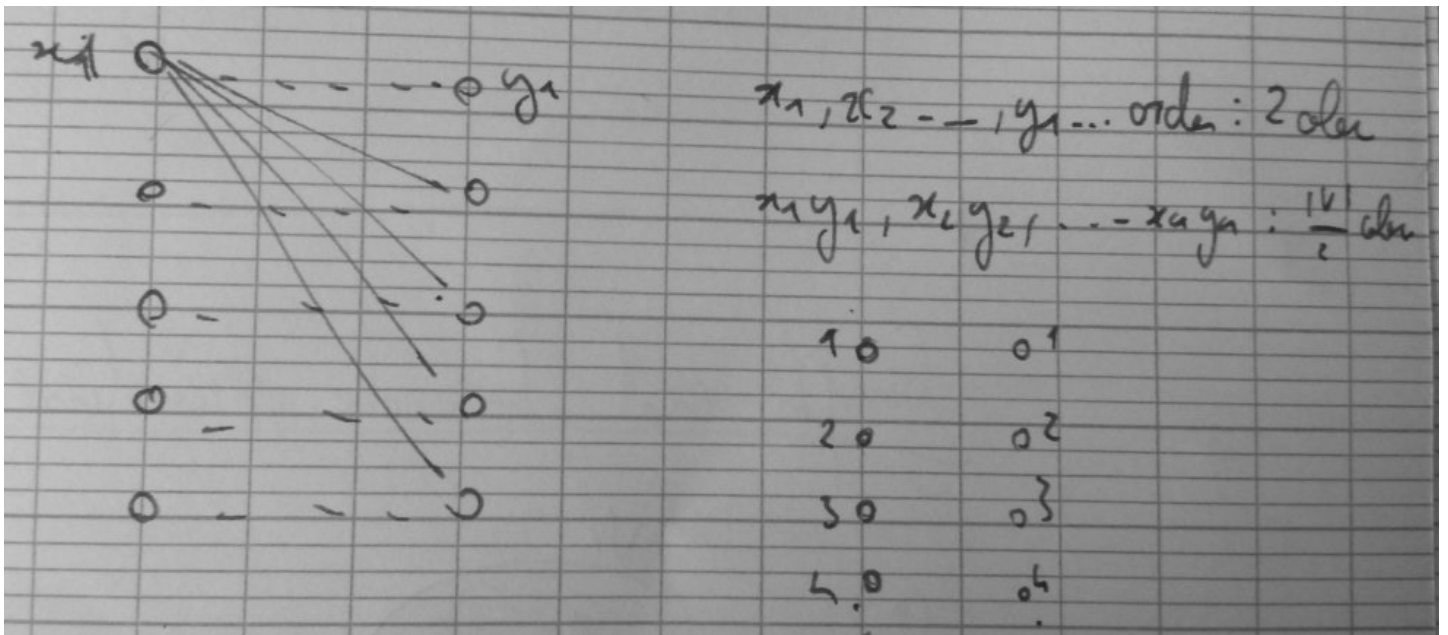 x1 y1
x1, x2 - - , y1 ... order : 2 color
x1 y1, x2 y2, ... - xn yn : |V|/2 color
1 1
2 2
3 3
4 4